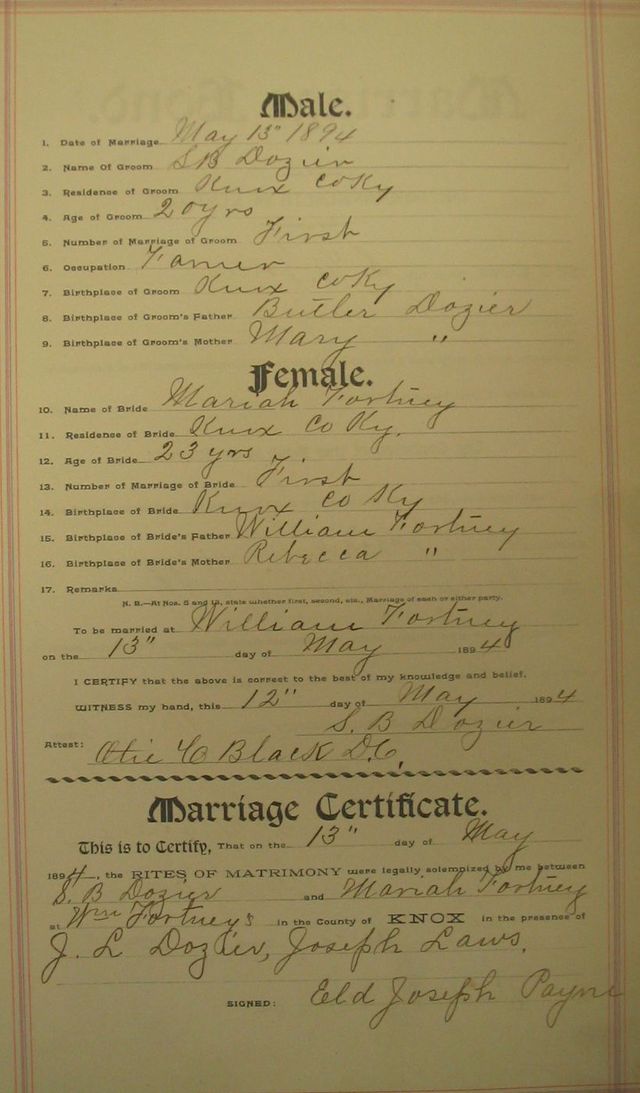 Male.
1. Date of Marriage May 13" 1894
2. Name Of Groom S B Dozier
3. Residence of Groom Knox Co Ky
4. Age of Groom 20 yrs
5. Number of Marriage of Groom First
6. Occupation Farmer
7. Birthplace of Groom Knox Co Ky
8. Birthplace of Groom's Father Butler Dozier
9. Birthplace of Groom's Mother Mary "
Female.
10. Name of Bride Mariah Fortney
11. Residence of Bride Knox Co Ky.
12. Age of Bride 23 yrs
13. Number of Marriage of Bride First
14. Birthplace of Bride Knox Co Ky
15. Birthplace of Bride's Father William Fortney
16. Birthplace of Bride's Mother Rebecca "
17. Remarks
N. B.—At Nos. 5 and 13, state whether first, second, etc., Marriage of each or either party.
To be married at William Fortney
on the 13" day of May 1894
I CERTIFY that the above is correct to the best of my knowledge and belief.
WITNESS my hand, this 12" day of May 1894
S. B Dozier
Attest: Black D.C.
Marriage Certificate.
This is to Certify, That on the 13" day of May
1894, the RITES OF MATRIMONY were legally solemnized by me between
S. B Dozier and Mariah Fortney
at Wm Fortney's in the County of KNOX in the presence of
J. L Dozier, Joseph Laws.
SIGNED: Eld Joseph Payne